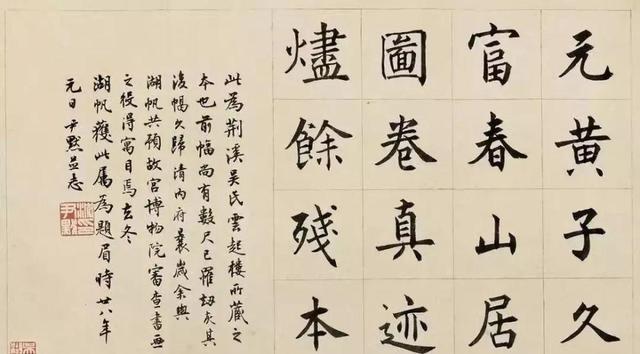 元黄子久
富春山居
圖卷真迹
燼餘殘本
此為荆溪吴氏雲起樓所藏之
本也前幅尚有數尺已罹劫灰其
後幅久歸清内府曩歲余與
湖帆共預故宫博物院審查書畫
之役得寓目焉去冬
湖帆獲此屬為題眉時廿八年
元日尹默並志